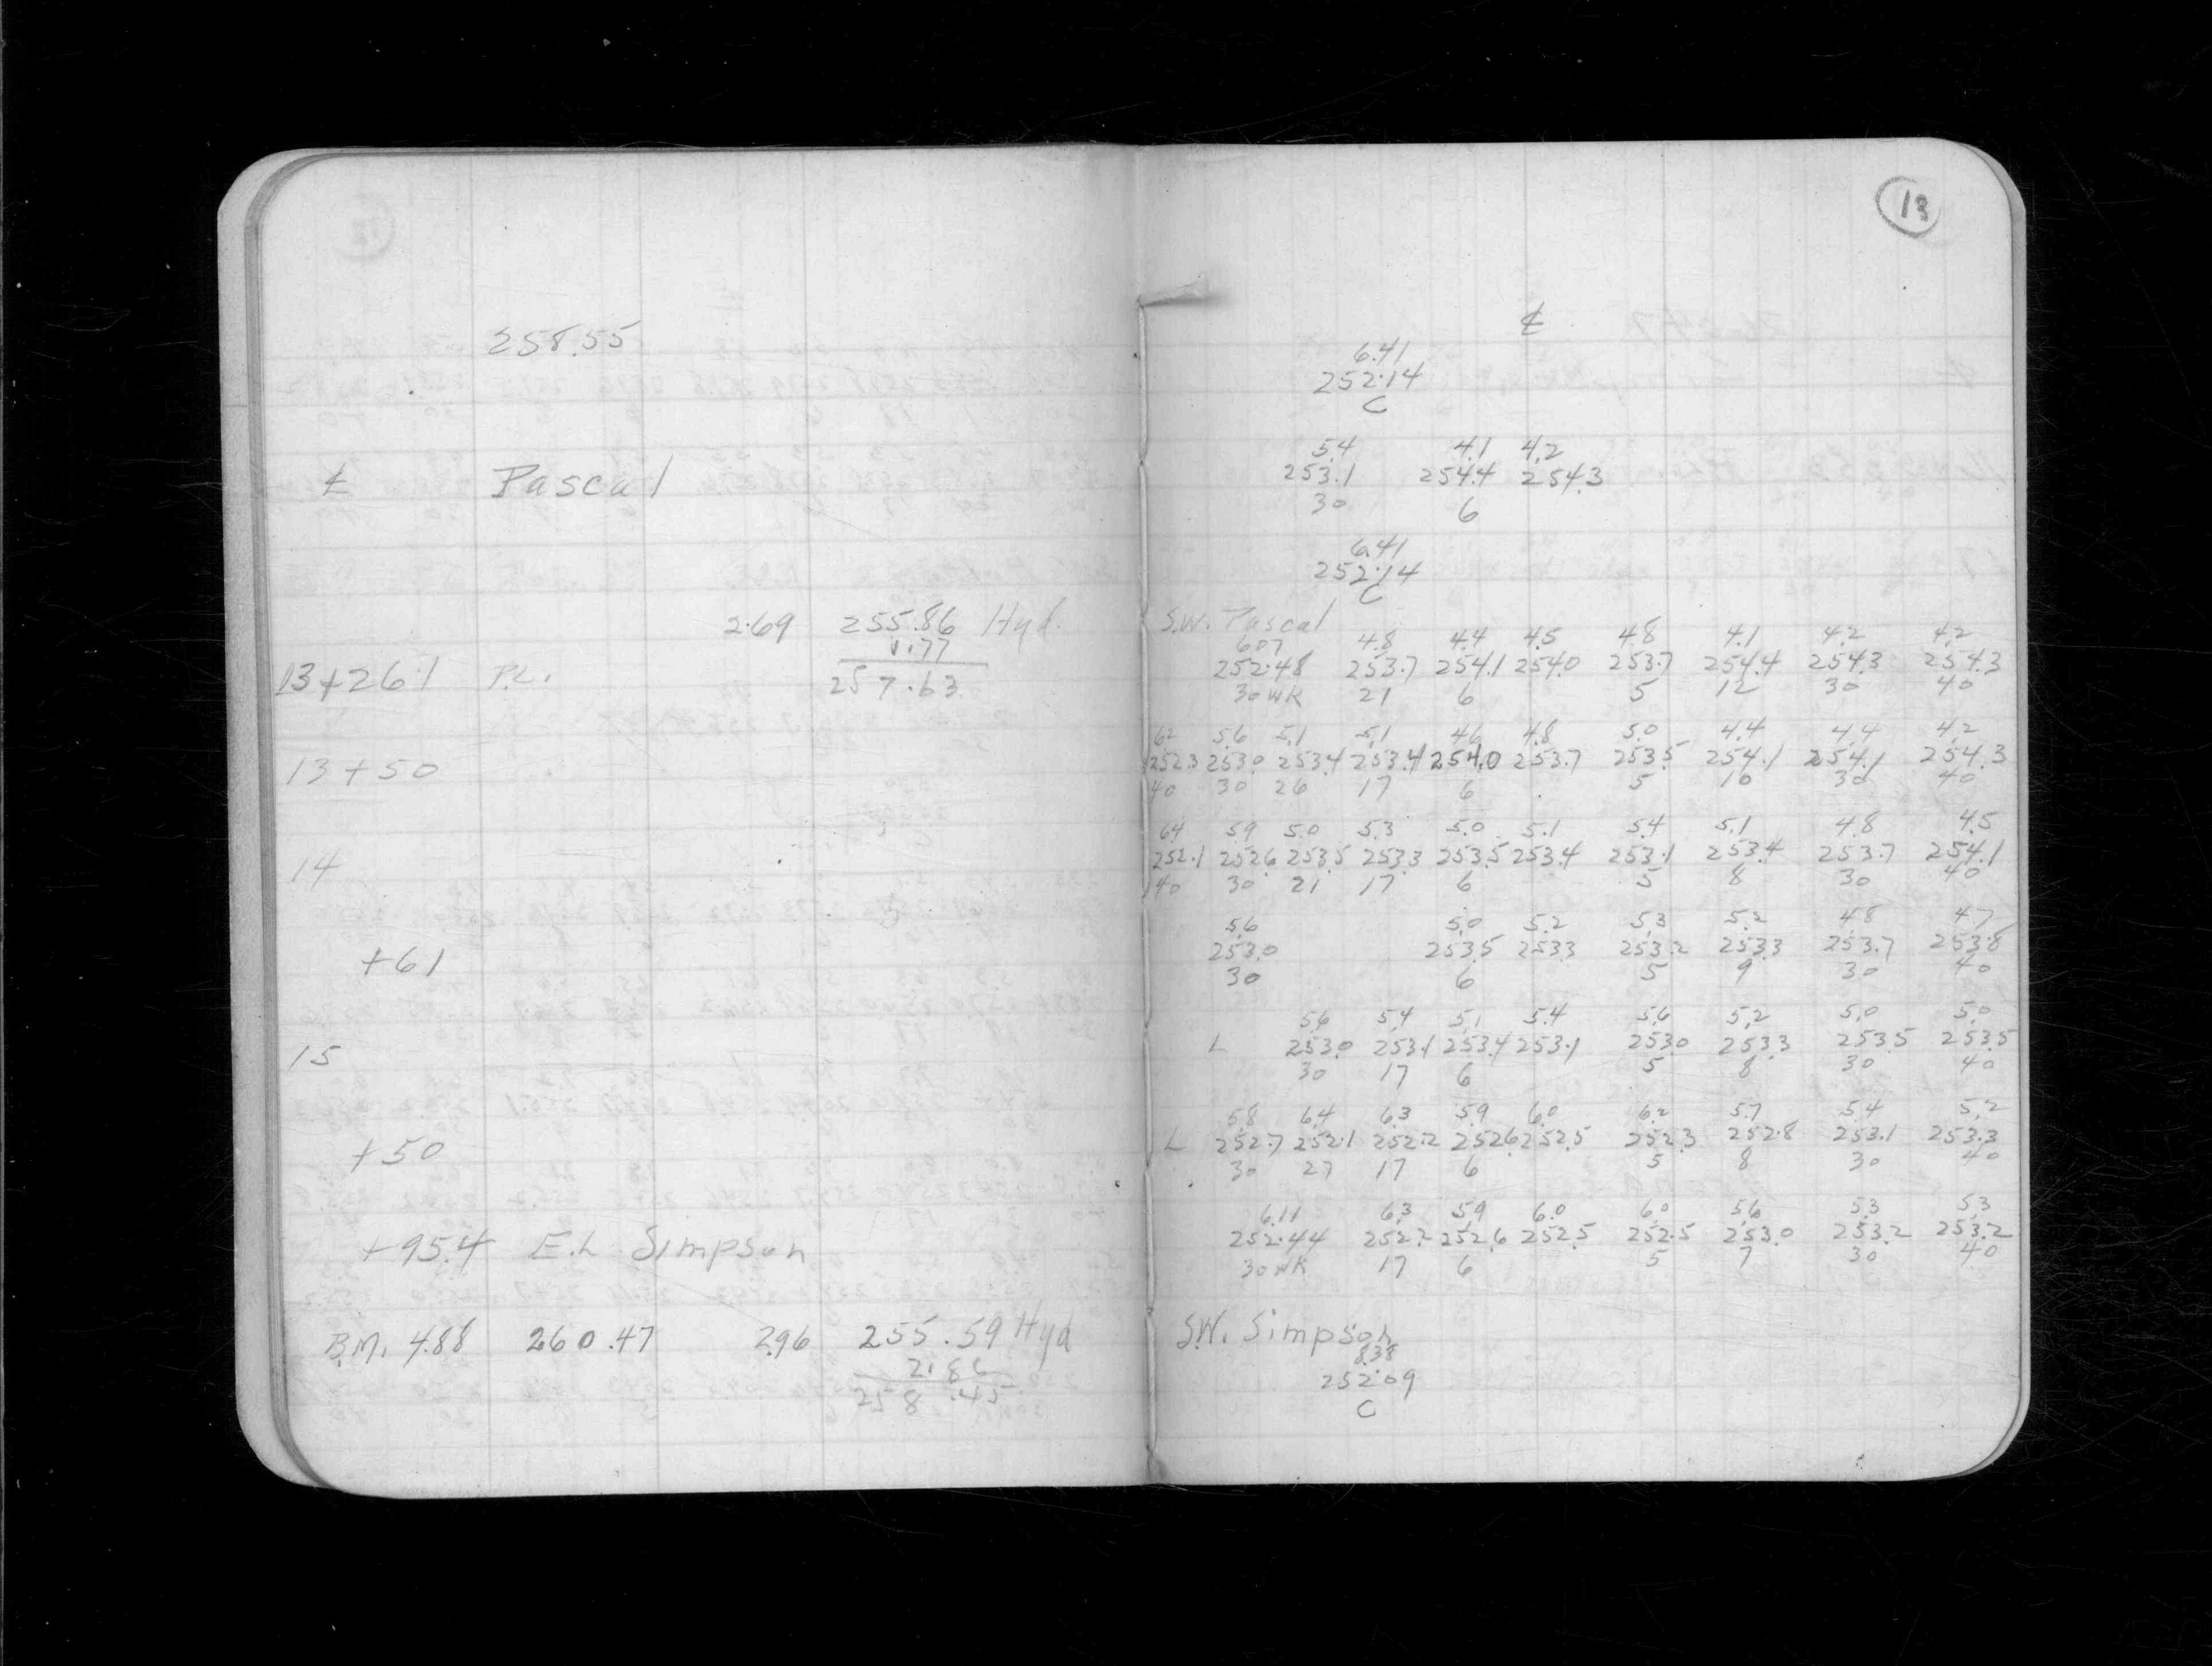 258.55
℄ Pascal
2.69 255.86 Hyd.
1.77
13+26.1 P.L. 257.63
13+50
14
+61
15
+50
+95.4 E.L Simpson
B.M. 4.88 260.47 2.96 255.59 Hyd
2.86
258.45
13
℄
6.41
252.14
C
5.4 4.1 4.2
253.1 254.4 254.3
30 6
6.41
252.14
C
S.W. Pascal
6.07 4.8 4.4 4.5 4.8 4.1 4.2 4.2
252.48 253.7 254.1 254.0 253.7 254.4 254.3 254.3
30 WK 21 6 5 12 30 40
6.2 5.6 5.1 5.1 4.6 4.8 5.0 4.4 4.4 4.2
252.3 253.0 253.4 253.4 254.0 253.7 253.5 254.1 254.1 254.3
40 30 26 17 6 5 10 30 40
6.4 5.9 5.0 5.3 5.0 5.1 5.4 5.1 4.8 4.5
252.1 252.6 253.5 253.3 253.5 253.4 253.1 253.4 253.7 254.1
40 30 21 17 6 5 8 30 40
5.6 5.0 5.2 5.3 5.2 4.8 4.7
253.0 253.5 253.3 253.2 253.3 253.7 253.8
30 6 5 9 30 40
5.6 5.4 5.1 5.4 5.6 5.2 5.0 5.0
L 253.0 253.1 253.4 253.1 253.0 253.3 253.5 253.5
30 17 6 5 8 30 40
5.8 6.4 6.3 5.9 6.0 6.2 5.7 5.4 5.2
L 252.7 252.1 252.2 252.6 252.5 252.3 252.8 253.1 253.3
30 27 17 6 5 8 30 40
6.11 6.3 5.9 6.0 6.0 5.6 5.3 5.3
252.44 252.2 252.6 252.5 252.5 253.0 253.2 253.2
30 WK 17 6 5 7 30 40
S.W. Simpson
8.38
252.09
C